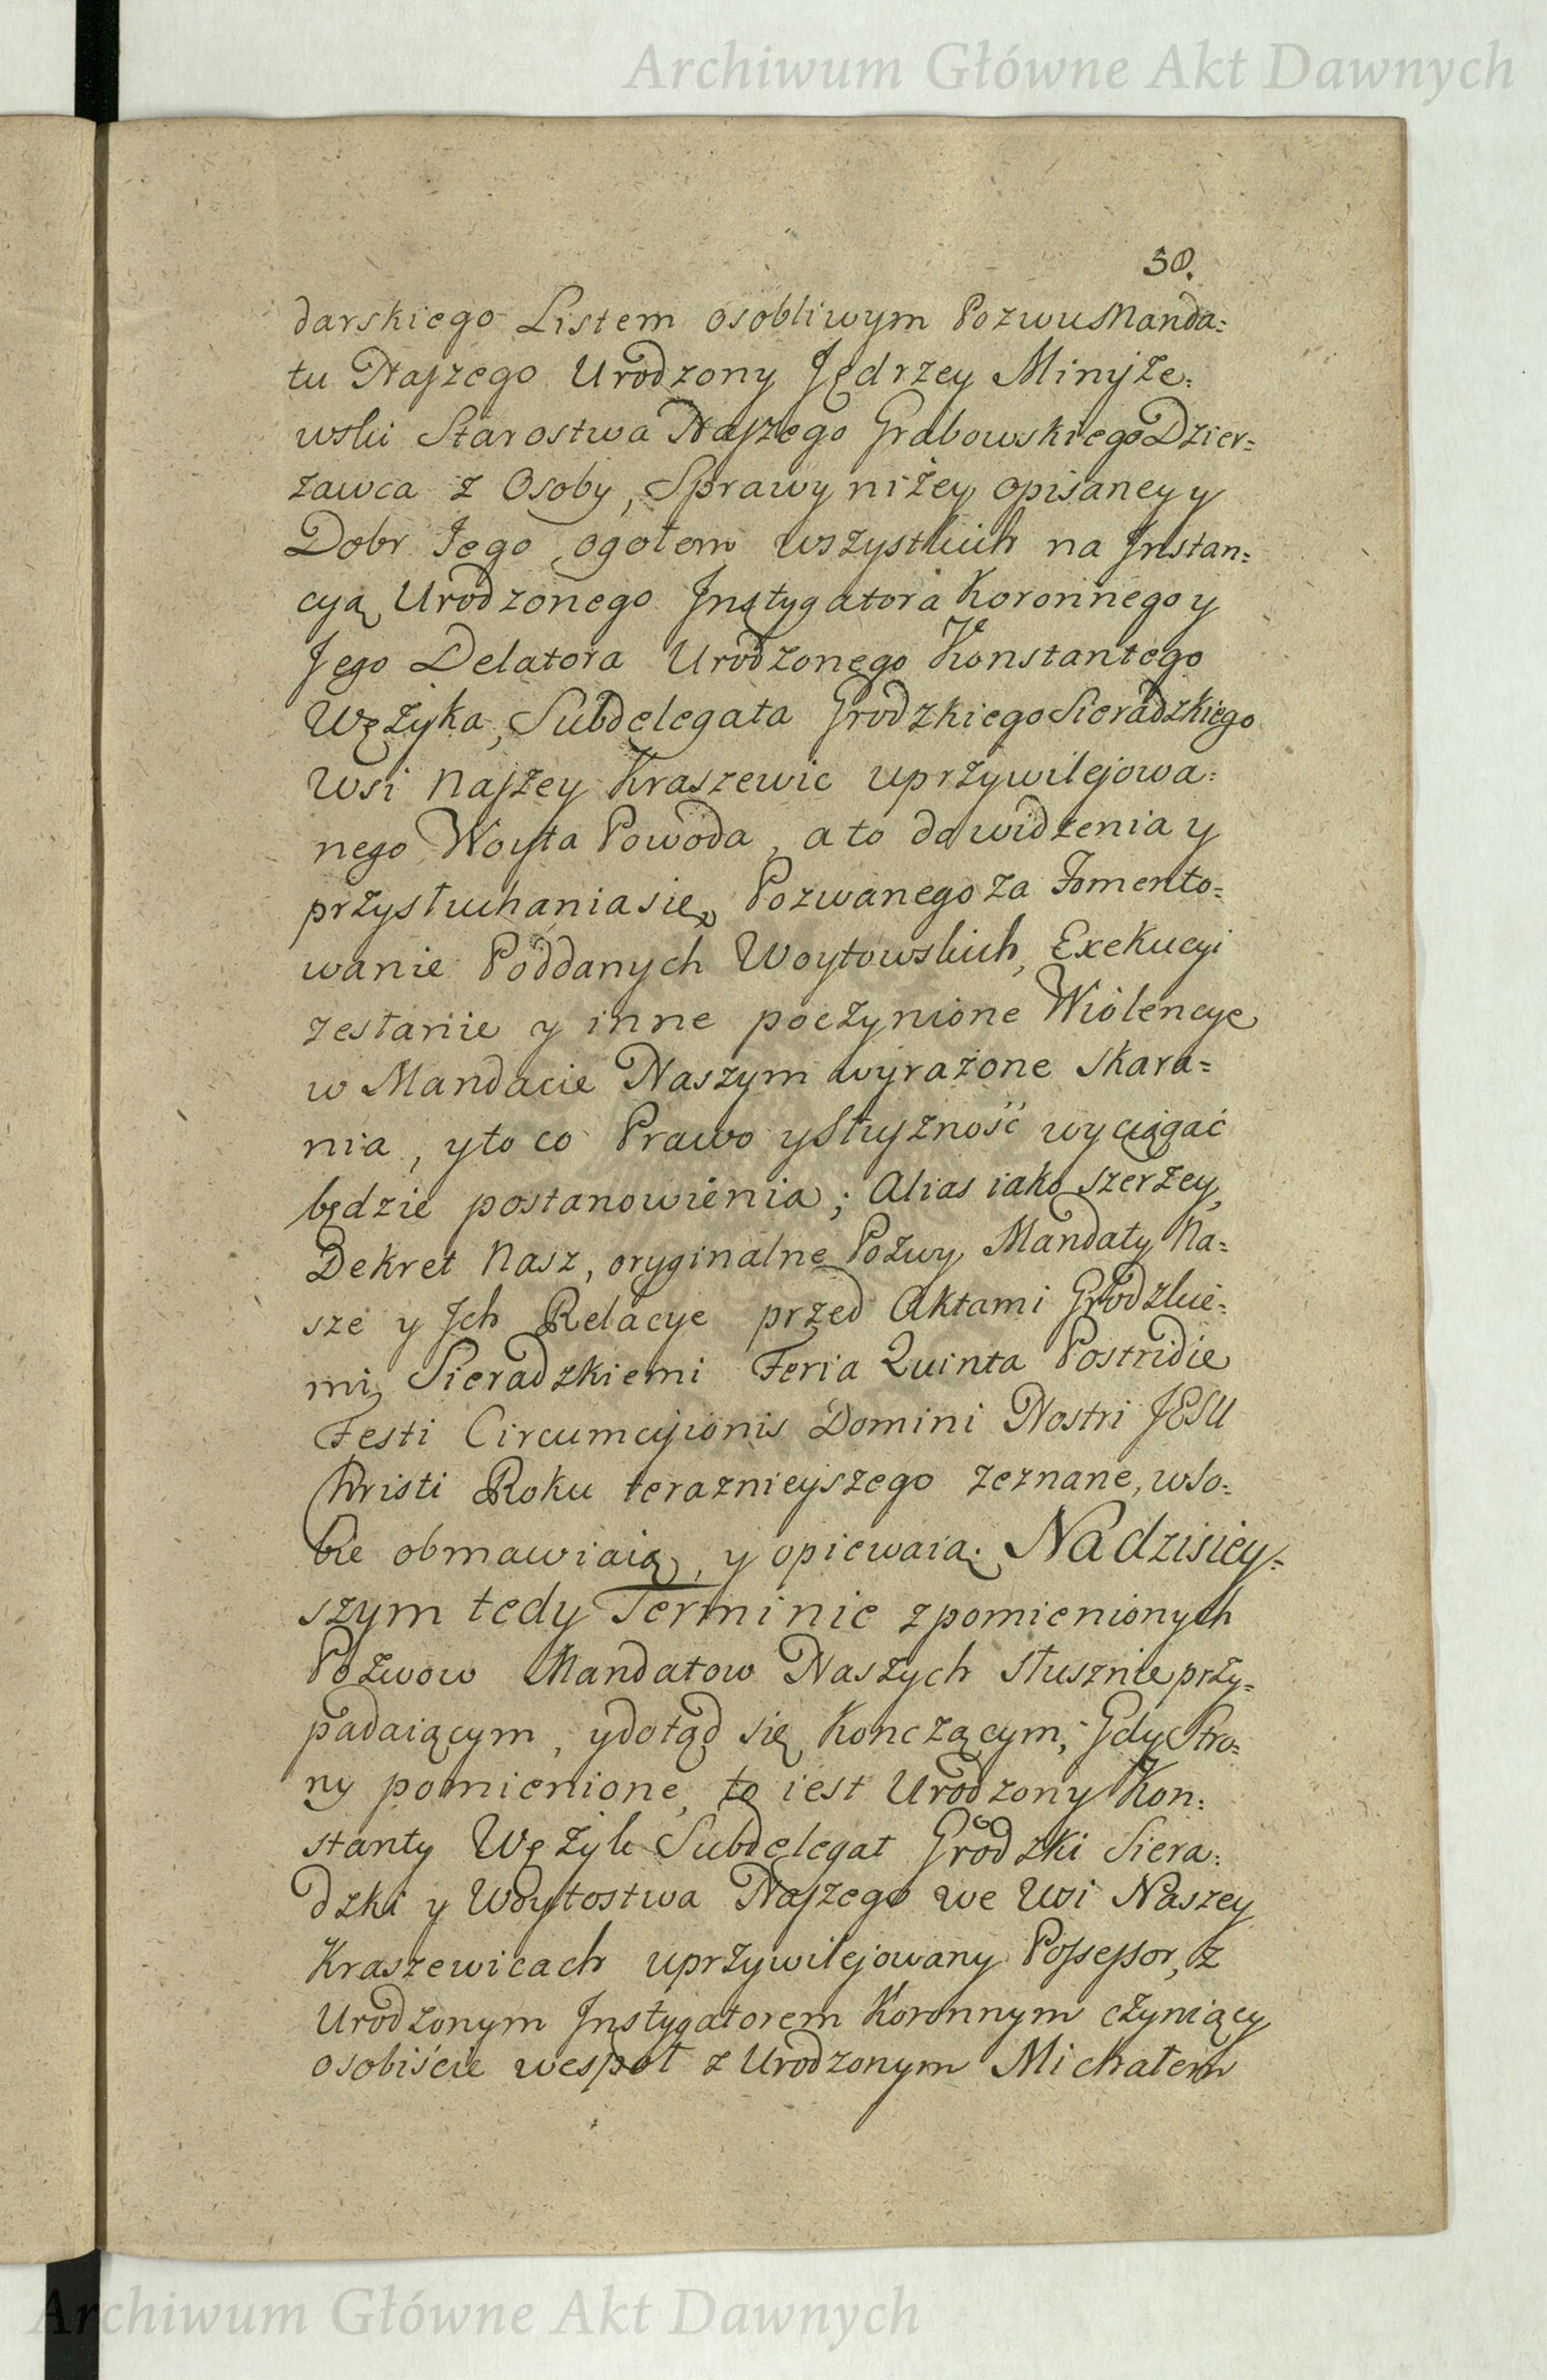 Archiwum Główne Akt Dawnych
50.
darskiego Listem osobliwym Pozwu Manda=
tu Naszego Urodzony Jędrzey Minysze=
wski Starostwa Naszego Grabowskiego Dzier=
zawca z Osoby, Sprawy niżey opisaney y
Dobr Jego ogołem wszystkich na Instan=
cyą Urodzonego Instygatora Koronnego y
Jego Delatora Urodzonego Konstantego
Wężyka, Subdelegata Grodzkiego Sieradzkiego
Wsi Naszey Kraszewic uprzywilejowa=
nego Woyta Powoda, a to do widzenia y
przysłuchania się Pozwanego za Fomento=
wanie Poddanych Woytowskich, Exekucyi
zesłanie y inne poczynione Wiolencye
w Mandacie Naszym wyrażone skara=
nia, y to co Prawo y Słuszność wyciągać
będzie postanowienia; Alias iako szerzey
Dekret Nasz, oryginalne Pozwy Mandaty Na=
sze y Ich Relacye przed Aktami Grodzkie=
mi Sieradzkiemi Feria Quinta Postridie
Festi Circumcisionis Domini Nostri JESU
Christi Roku teraznieyszego zeznane, w so=
bie obmawiaią, y opiewaią. Na dzisiey=
szym tedy Terminie z pomienionych
Pozwow Mandatow Naszych słusznie przy=
padaiącym, y dotąd się kończącym, Gdy Stro=
ny pomienione, to iest Urodzony Kon=
stanty Wężyk Subdelegat Grodzki Siera=
dzki y Woytostwa Naszego we Wsi Naszey
Kraszewicach uprzywilejowany Possessor, z
Urodzonym Instygatorem Koronnym czyniący
osobiście wespoł z Urodzonym Michałem
Archiwum Główne Akt Dawnych